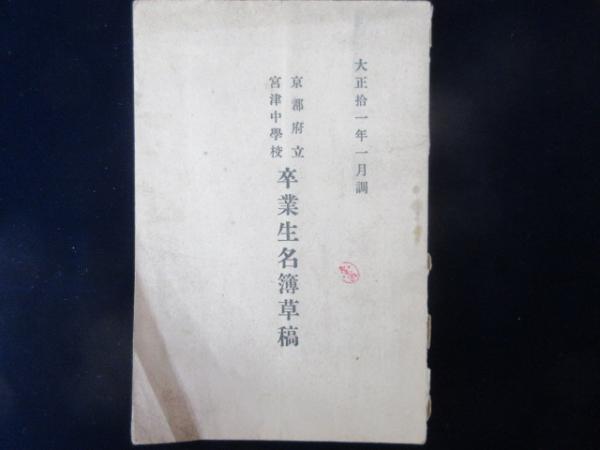 大正拾一年一月調
京都府立
宮津中學校
卒業生名簿草稿